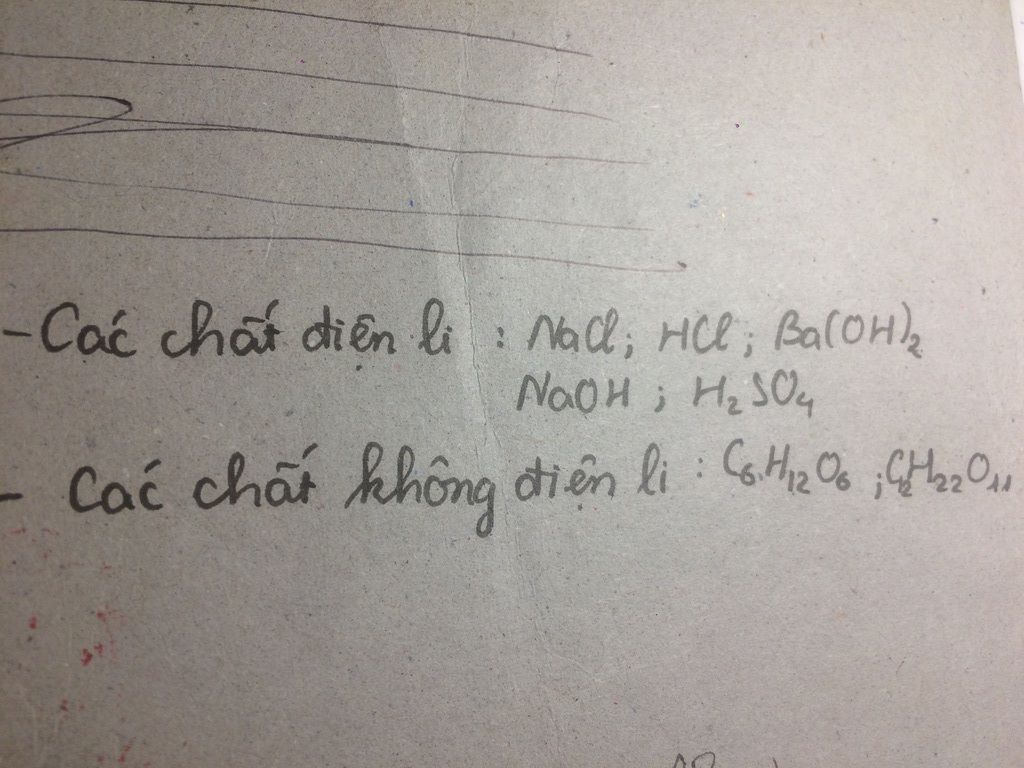 - Các chất điện li : NaCl; HCl; Ba(OH)₂
NaOH ; H₂SO₄
- Các chất không điện li : C₆H₁₂O₆ ; C₁₂H₂₂O₁₁